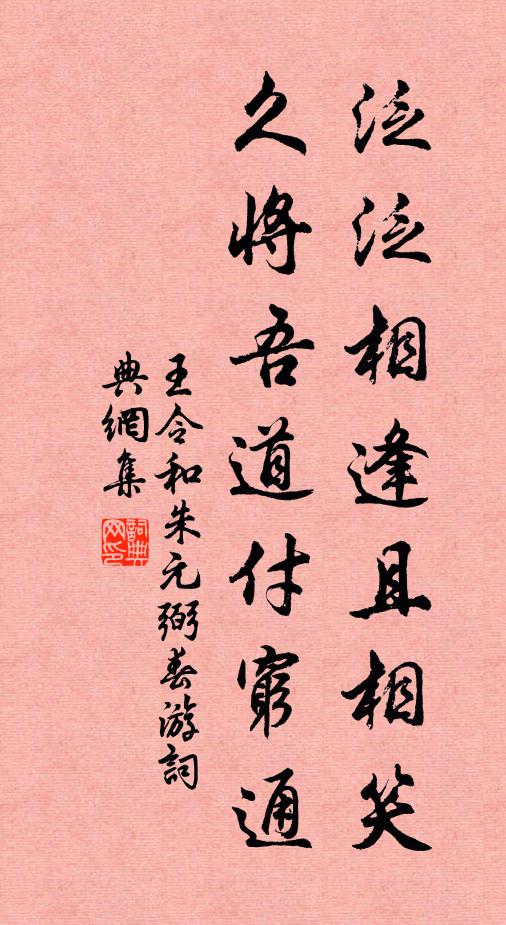 泛泛相逢且相笑
久將吾道付窮通
王令和朱元弼春游詞
典網集
詞典網印